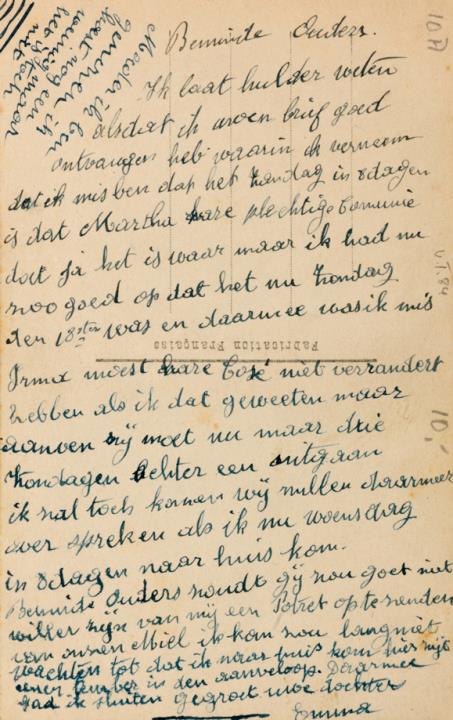 Beminde Ouders.
Ik laat hulder weten
alsdat ik uwen brief goed
ontvangen heb waarin ik verneem
dat ik mis ben dat het Zondag in 8dagen
is dat Martha hare plechtige Comunie
doet ja het is waar maar ik had nu
zoo goed op dat het nu Zondag
den 18sten was en daarmee was ik mis
Irma moest hare niet verrandert
hebben als ik dat geweeten maar
zij moet nu maar drie
Zondagen achter een uitgaan
ik zal toch komen wij zullen daarmeer
over spreken als ik nu woensdag
in 8dagen naar huis kom.
Beminde Ouders zoudt gij zou goet niet
willen zijn van mij een Potret op te zenden
van onzen Miel ik kan zou lang niet
wachten tot dat ik naar huis kom hier zijt
in den aanveloop. Daarmee
gad ik sluiten gegroet uwe dochter
Emma
Moeder ik ben
ik
hoest nog een
weinig
het
niet toch
Fabrication Française
10A
UT84
10,-